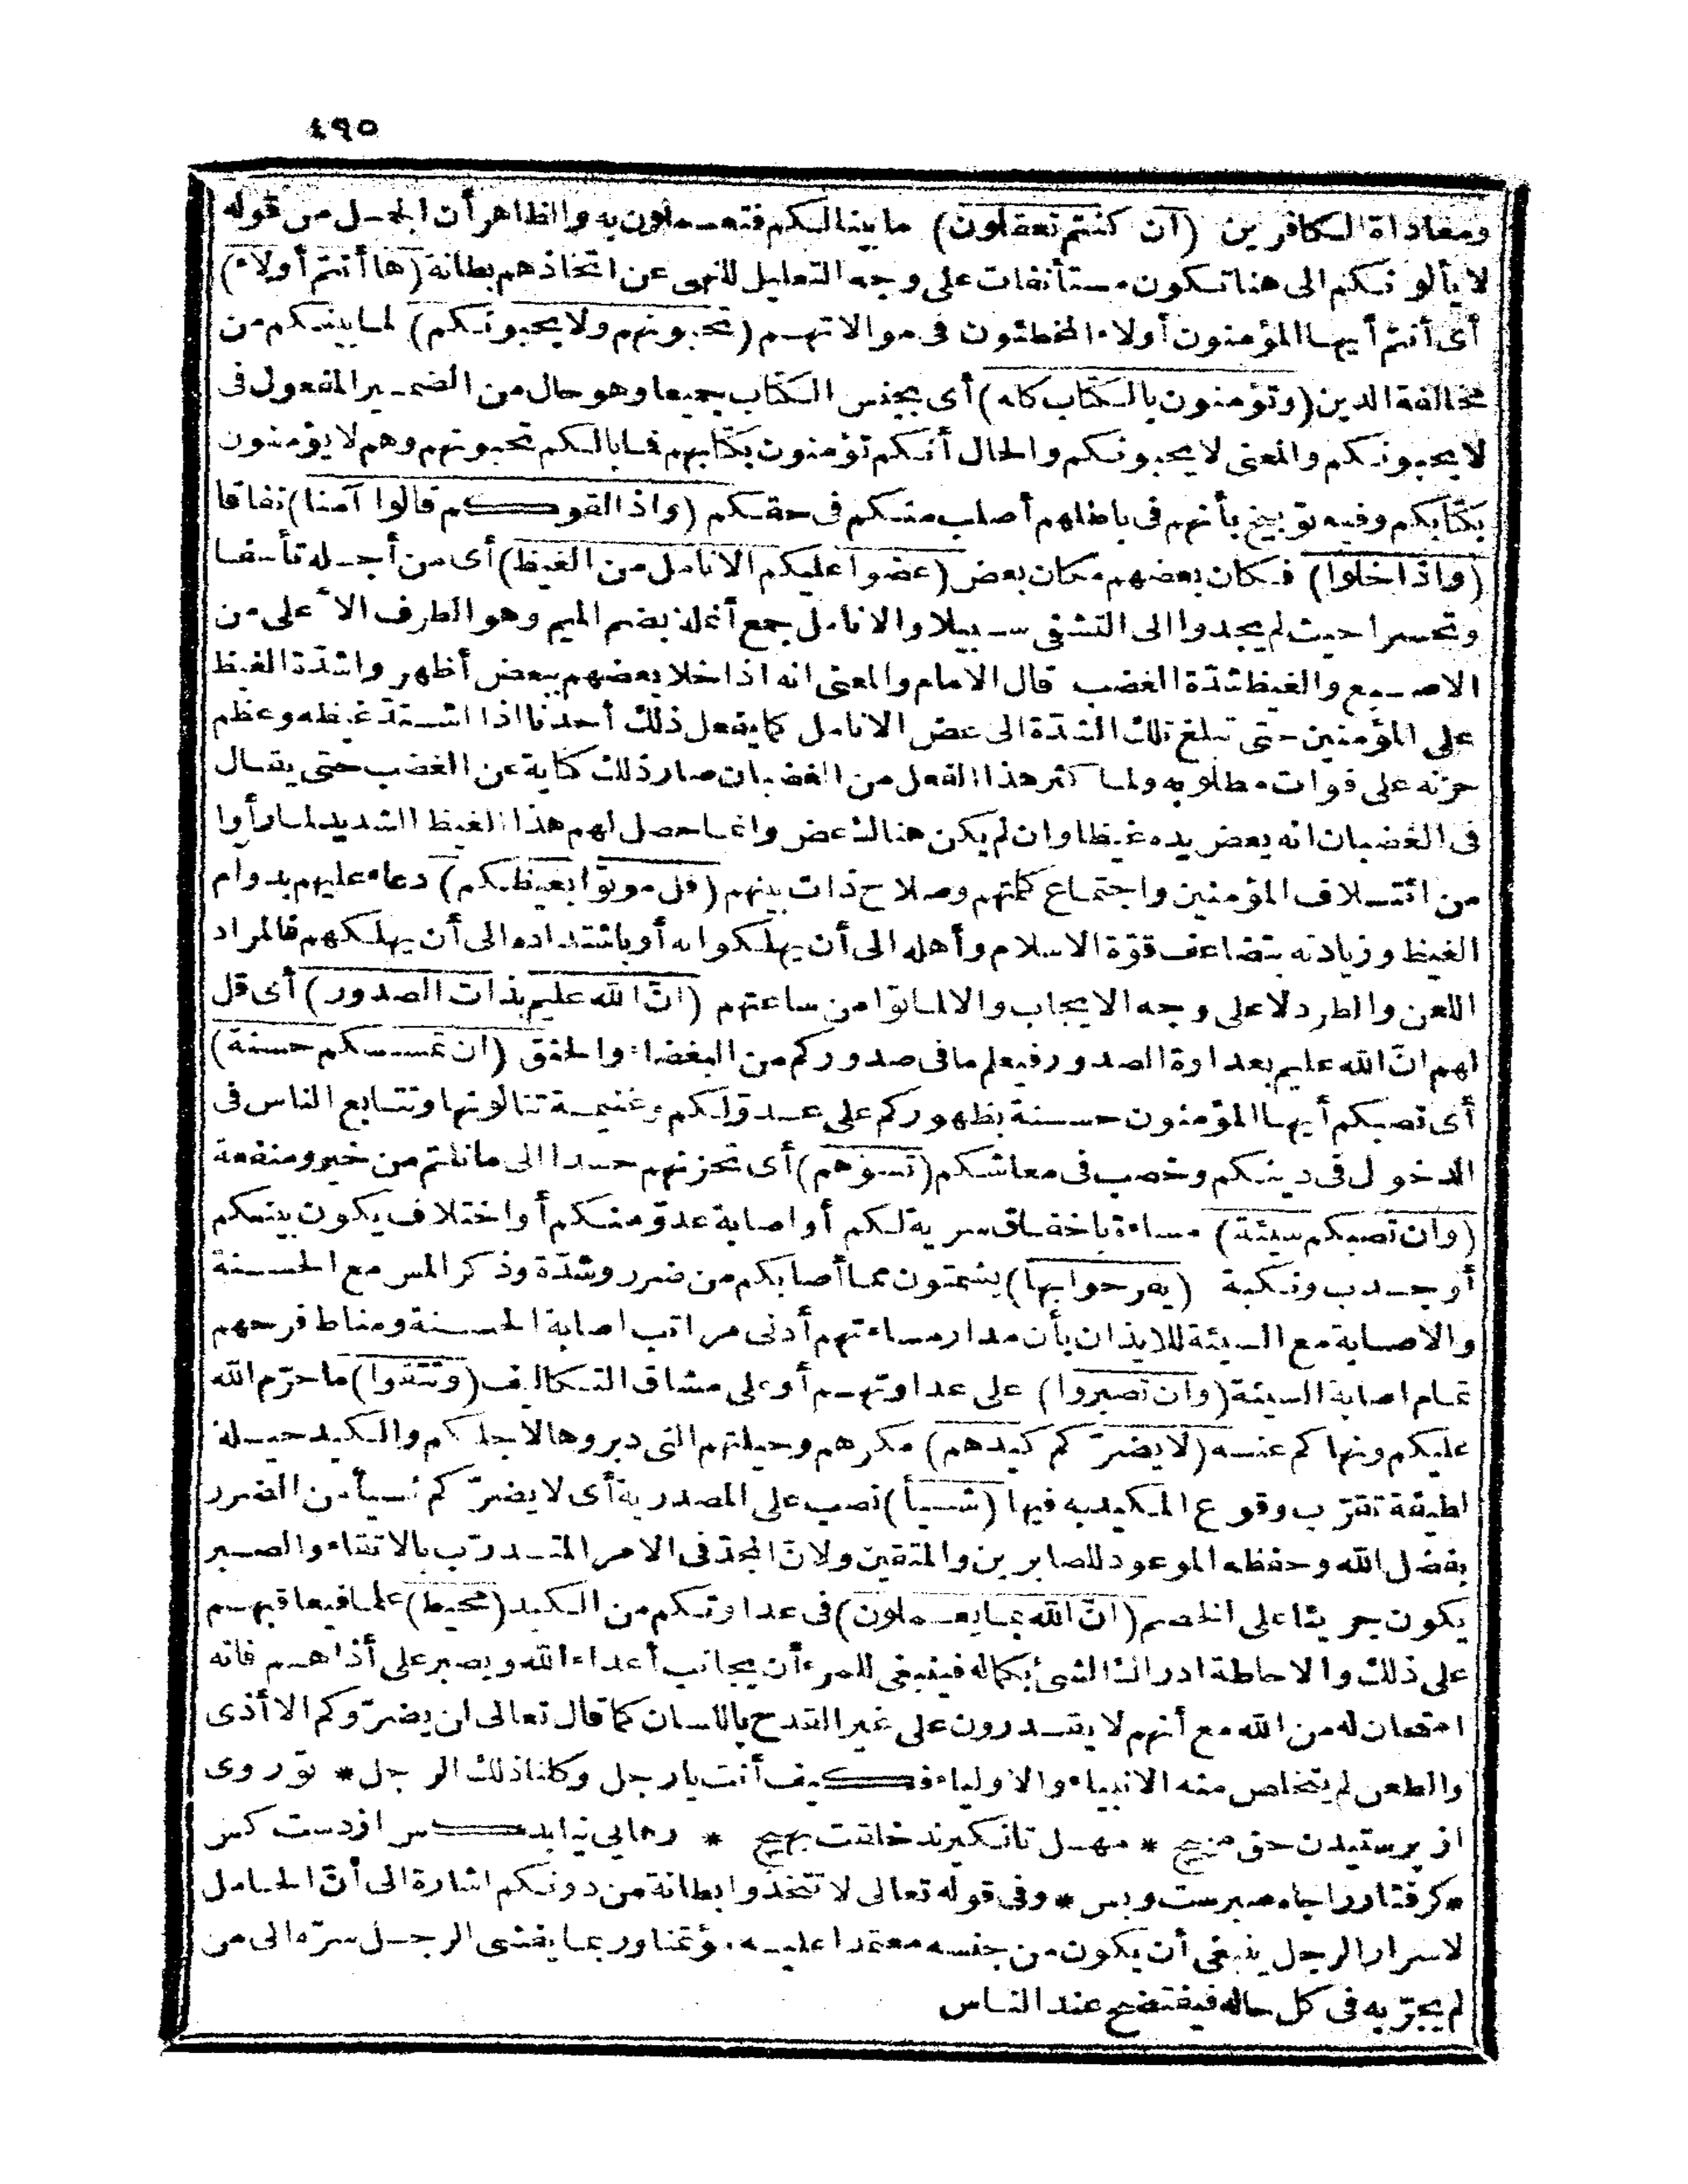 ٤٩٥
ومعاداة الكافرين (ان كنتم تعقلون) ما بينا لكم فتعملون به والظاهر أن الجمل من قوله
لا يألونكم الى هنا تكون مستأنفات على وجه التعليل للنهى عن اتخاذهم بطانة (ها أنتم أولاء)
أى أنتم أيها المؤمنون أولاء المخطئون فى موالاتهم (تحبونهم ولا يحبونكم) لما بينكم من
مخالفة الدين (وتؤمنون بالكتاب كله) أى بجنس الكتاب جميعا وهو حال من الضمير المفعول فى
لا يحبونكم والمعنى لا يحبونكم والحال أنكم تؤمنون بكتابهم فما بالكم تحبونهم وهم لا يؤمنون
بكتابكم وفيه توبيخ بأنهم فى باطلهم أصلب منكم فى حقكم (واذا لقوكم قالوا آمنا) نفاقا
(واذا خلوا) فكان بعضهم مكان بعض (عضوا عليكم الانامل من الغيظ) أى من أجله تأسفا
وتحسرا حيث لم يجدوا الى التشفى سبيلا والانامل جمع أنملة بضم الميم وهو الطرف الأعلى من
الاصبع والغيظ شدّة الغضب قال الامام والمعنى انه اذا خلا بعضهم ببعض أظهروا شدّة الغيظ
على المؤمنين حتى تبلغ تلك الشدّة الى عض الانامل كما يفعل ذلك أحدنا اذا اشتدّ غيظه وعظم
حزنه على فوات مطلوبه ولما كثر هذا الفعل من الغضبان صار ذلك كناية عن الغضب حتى يقال
فى الغضبان انه يعض يده غيظا وان لم يكن هناك عض وانما حصل لهم هذا الغيظ الشديد لما رأوا
من ائتلاف المؤمنين واجتماع كلمتهم وصلاح ذات بينهم (قل موتوا بغيظكم) دعاء عليهم بدوام
الغيظ وزيادته بتضاعف قوّة الاسلام وأهله الى أن يهلكوا به أو باشتداده الى أن يهلكهم فالمراد
اللعن والطرد لا على وجه الايجاب والالماتوا من ساعتهم (انّ الله عليم بذات الصدور) أى قل
لهم انّ الله عليم بعداوة الصدور فيعلم ما فى صدوركم من البغضاء والحنق (ان تمسسكم حسنة)
أى تصبكم أيها المؤمنون حسنة بظهوركم على عدوّ لكم وغنيمة تنالونها وتتابع الناس فى
الدخول فى دينكم وخصب فى معاشكم (تسؤهم) أى تحزنهم حسدا الى ما نلتم من خير ومنفعة
(وان تصبكم سيئة) مساءة باخفاق سرية لكم أو اصابة عدوّ منكم أو اختلاف يكون بينكم
أو جدب ونكبة (يفرحوا بها) يشمتون مما أصابكم من ضرر وشدّة وذكر المس مع الحسنة
والاصابة مع السيئة للايذان بأن مدار مساءتهم أدنى مراتب اصابة الحسنة ومناط فرحهم
تمام اصابة السيئة (وان تصبروا) على عداوتهم أو على مشاق التكاليف (وتتقوا) ما حرّم الله
عليكم ونهاكم عنه (لا يضرّكم كيدهم) مكرهم وحيلتهم التى دبروها لاجلكم والكيد حيلة
لطيفة تقرّب وقوع المكيد به فيها (شيأ) نصب على المصدرية أى لا يضرّكم شيأ من الضرر
بفضل الله وحفظه الموعود للصابرين والمتقين ولانّ المجدّ فى الامر المتدرّب بالاتقاء والصبر
يكون جريئا على الخصم (انّ الله بما يعملون) فى عداوتكم من الكيد (محيط) علما فيعاقبهم
على ذلك والاحاطة ادراك الشئ بكماله فينبغى للمرء أن يجانب أعداء الله ويصبر على أذاهم فانه
امتحان له من الله مع أنهم لا يقدرون على غير القدح باللسان كما قال تعالى لن يضرّوكم الا أذى
والطعن لم يتخلص منه الانبياء والاولياء فكيف أنت يا رجل وكلنا ذلك الرجل * تو روى
از پرستيدن حق مپيچ * مهل تا نكيرند خلقت بهيچ * رهايى نيابد كس از دست كس
* كرفتار را چاره صبرست وبس * وفى قوله تعالى لا تتخذوا بطانة من دونكم اشارة الى أنّ الحامل
لاسرار الرجل ينبغى أن يكون من جنسه معتمدا عليه مؤتمنا وربما يفشى الرجل سرّه الى من
لم يجرّبه فى كل حاله فيفتضح عند الناس